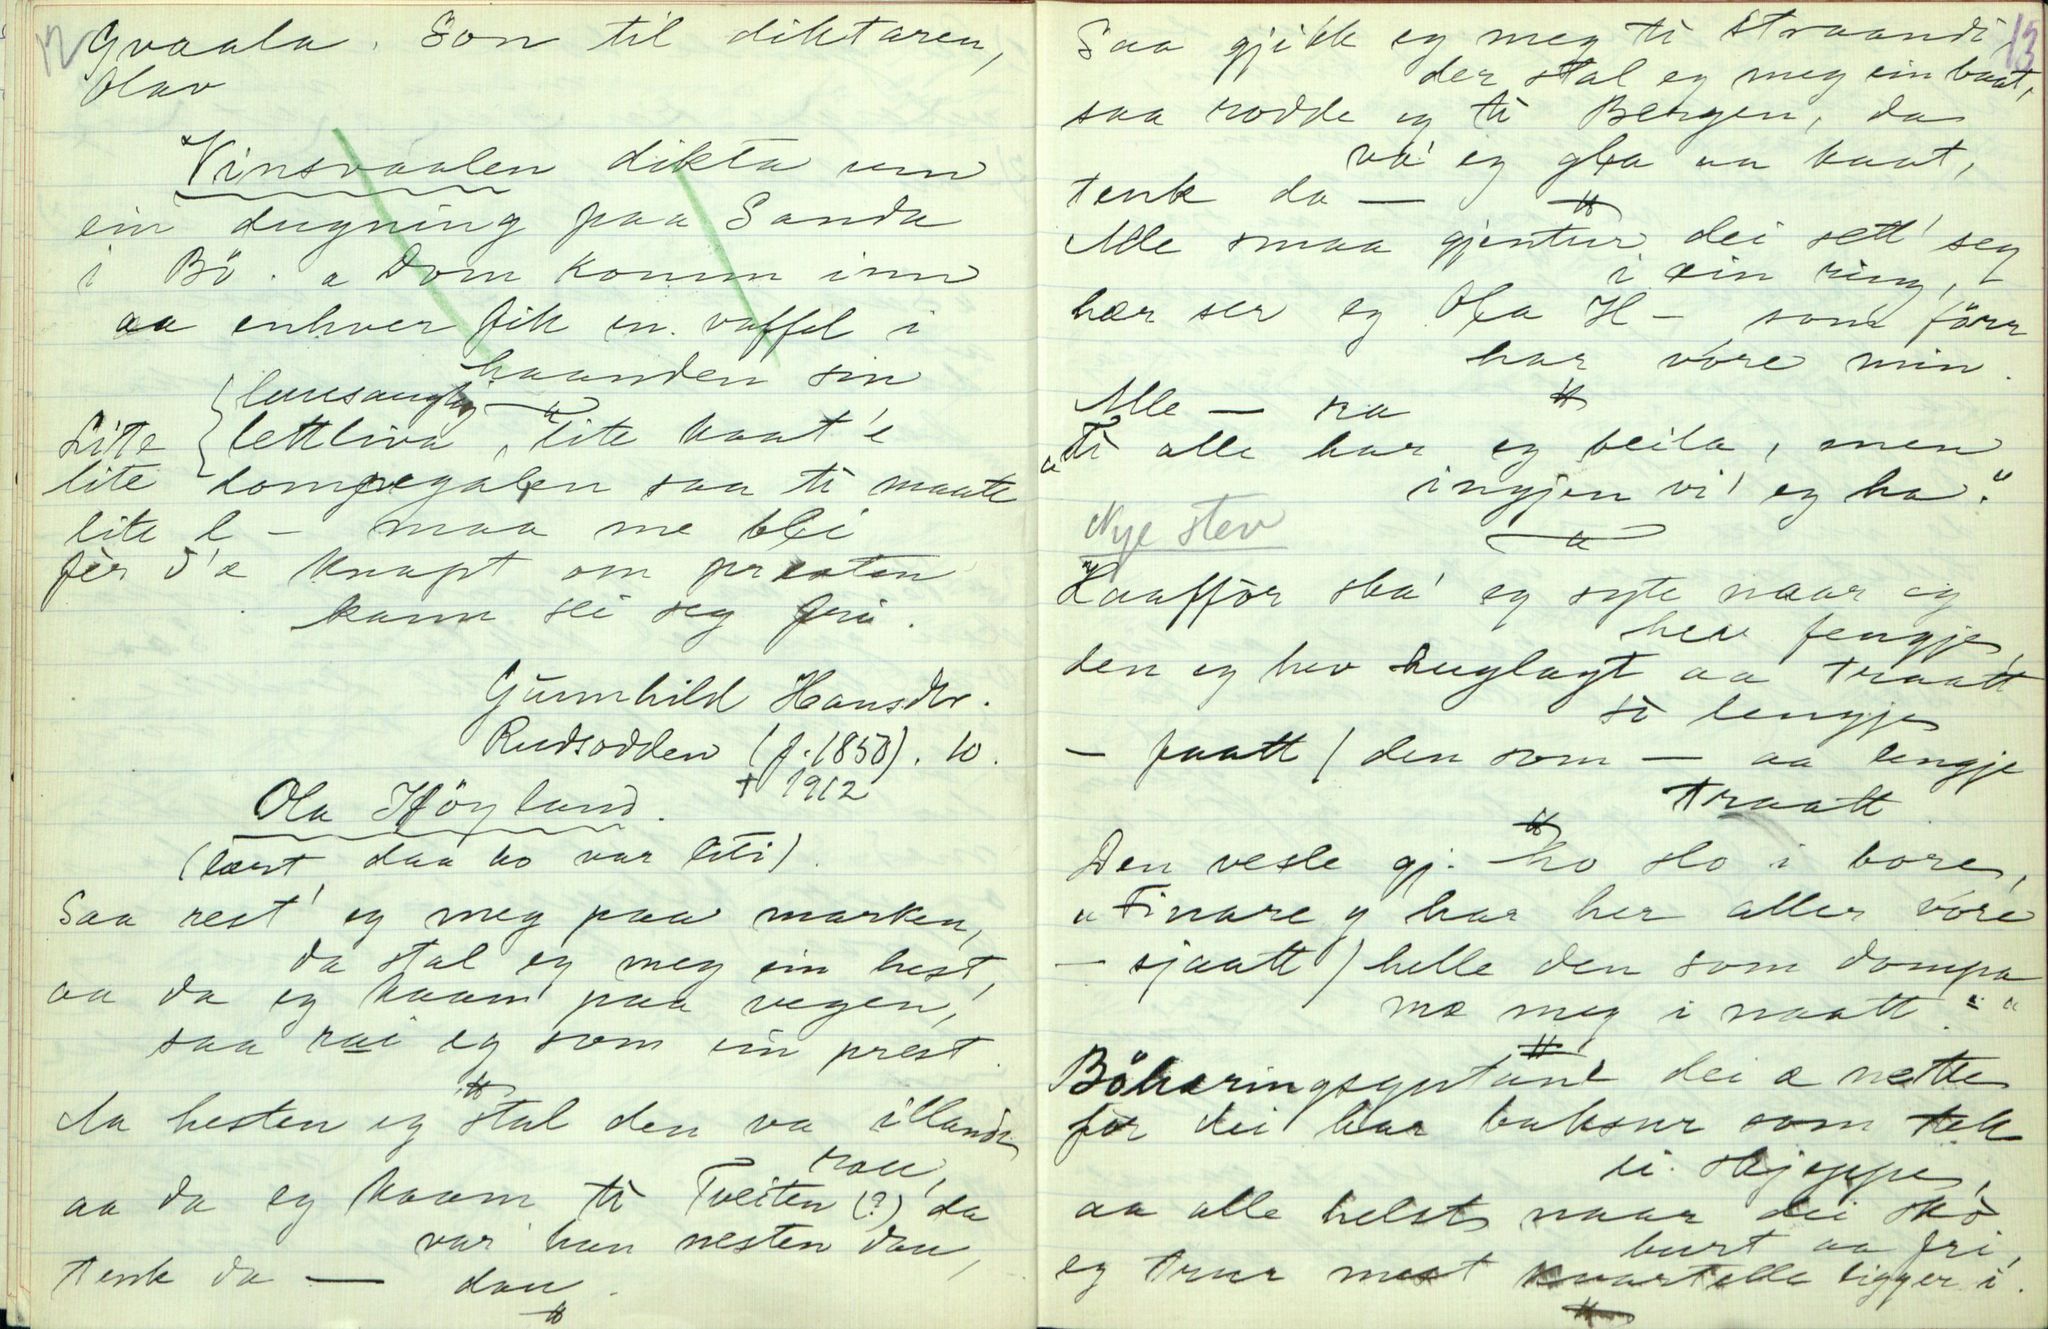 12
Gvaala. Son til diktaren,
Olav
Vinsvaalen dikta um
ein dugning paa Sanda
i Bö. a Dom komm inn
aa enhver fik en vaffel i
haanden sin
lausaug
Lite lettliva, lite kaat'e
lite dompegalen saa ti maate
lite l - maa me bli
fèr d'æ knapt om presten
kann sei seg fri.
Gunnhild Hansdtr.
Rudsodden (f. 1850). 10.
† 1912
Ola Höyland.
(lært daa ho var liti).
Saa rest' eg meg paa marken,
da stal eg meg ein hest,
aa da eg kaam paa vegen,
saa rei eg som ein prest.
Aa hesten eg stal den va illande
rau,
aa da eg kaam ti Tveiten (?) da
var han nesten dau,
tenk da — dau.
13
Saa gjikk eg meg ti straandi,
der stal eg meg ein baat,
saa rodde eg ti Bergen, da
va' eg gla aa kaat,
tenk da —
Alle smaa gjentur dei sett' seg
i ein ring,
her ser eg Ola H - som förr
har vøre min.
Alle — ra
"Ti alle har eg beila, men
ingjen vi' eg ha."
Nye stev
Haaffør ska' eg syte naar eg
hev fengje,
den eg hev huglagt aa traatt
so lengje
- faatt / den som — aa lengje
traatt
Den vesle gj. ho slo i bore,
"Finare g har her aller vøre
- sjaatt / helle den som dompa
mæ meg i naatt."
Böheringsgutane dei æ nette
før dei har buksur som tek
ei skjeppe,
aa alle helst naar dei sko
burt aa fri,
eg trur mest kvartelle ligger i.